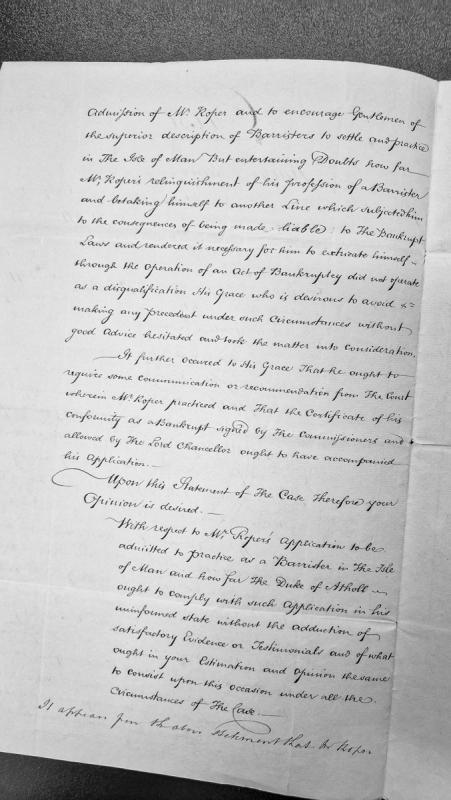 admission of Mr. Roper and to encourage Gentlemen of
the superior description of Barristers to settle and practice
in The Isle of Man But entertaining Doubts how far
Mr. Roper's relinquishment of his profession of a Barrister
and betaking himself to another Line which subjected him
to the consequences of being made liable to The Bankrupt
Laws and rendered it necessary for him to extricate himself
through the operation of an Act of Bankruptcy did not operate
as a disqualification His Grace who is desirous to avoid
making any precedent under such Circumstances without
good advice hesitated and took the matter into consideration.
It further occured to His Grace That he ought to
require some communication or recommendation from The Court
wherein Mr. Roper practiced and That the Certificate of his
conformity as a Bankrupt signed by The Commissioners and
allowed by The Lord Chancellor ought to have accompanied
his Application.
Upon this Statement of The Case Therefore your
Opinion is desired.
With respect to Mr. Roper's Application to be
admitted to practice as a Barrister in The Isle
of Man and how far The Duke of Atholl
ought to comply with such Application in his
uninformed state without the adduction of
satisfactory Evidence or Testimonials and of what
ought in your Estimation and Opinion the same
to consist upon this occasion under all the
Circumstances of The Case.
It appears from the above Statement that Mr Roper